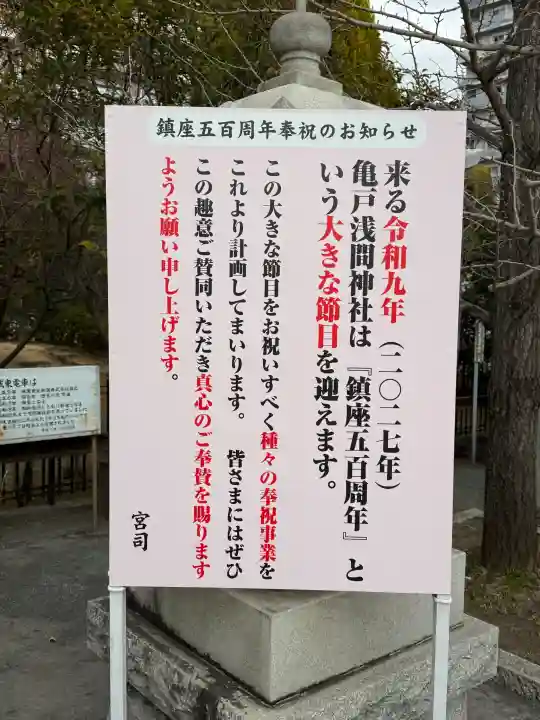 鎮座五百周年奉祝のお知らせ
来る令和九年（二〇二七年）
亀戸浅間神社は『鎮座五百周年』と
いう大きな節目を迎えます。
この大きな節目をお祝いすべく種々の奉祝事業を
これより計画してまいります。　皆さまにはぜひ
この趣意ご賛同いただき真心のご奉賛を賜ります
ようお願い申し上げます。
宮司